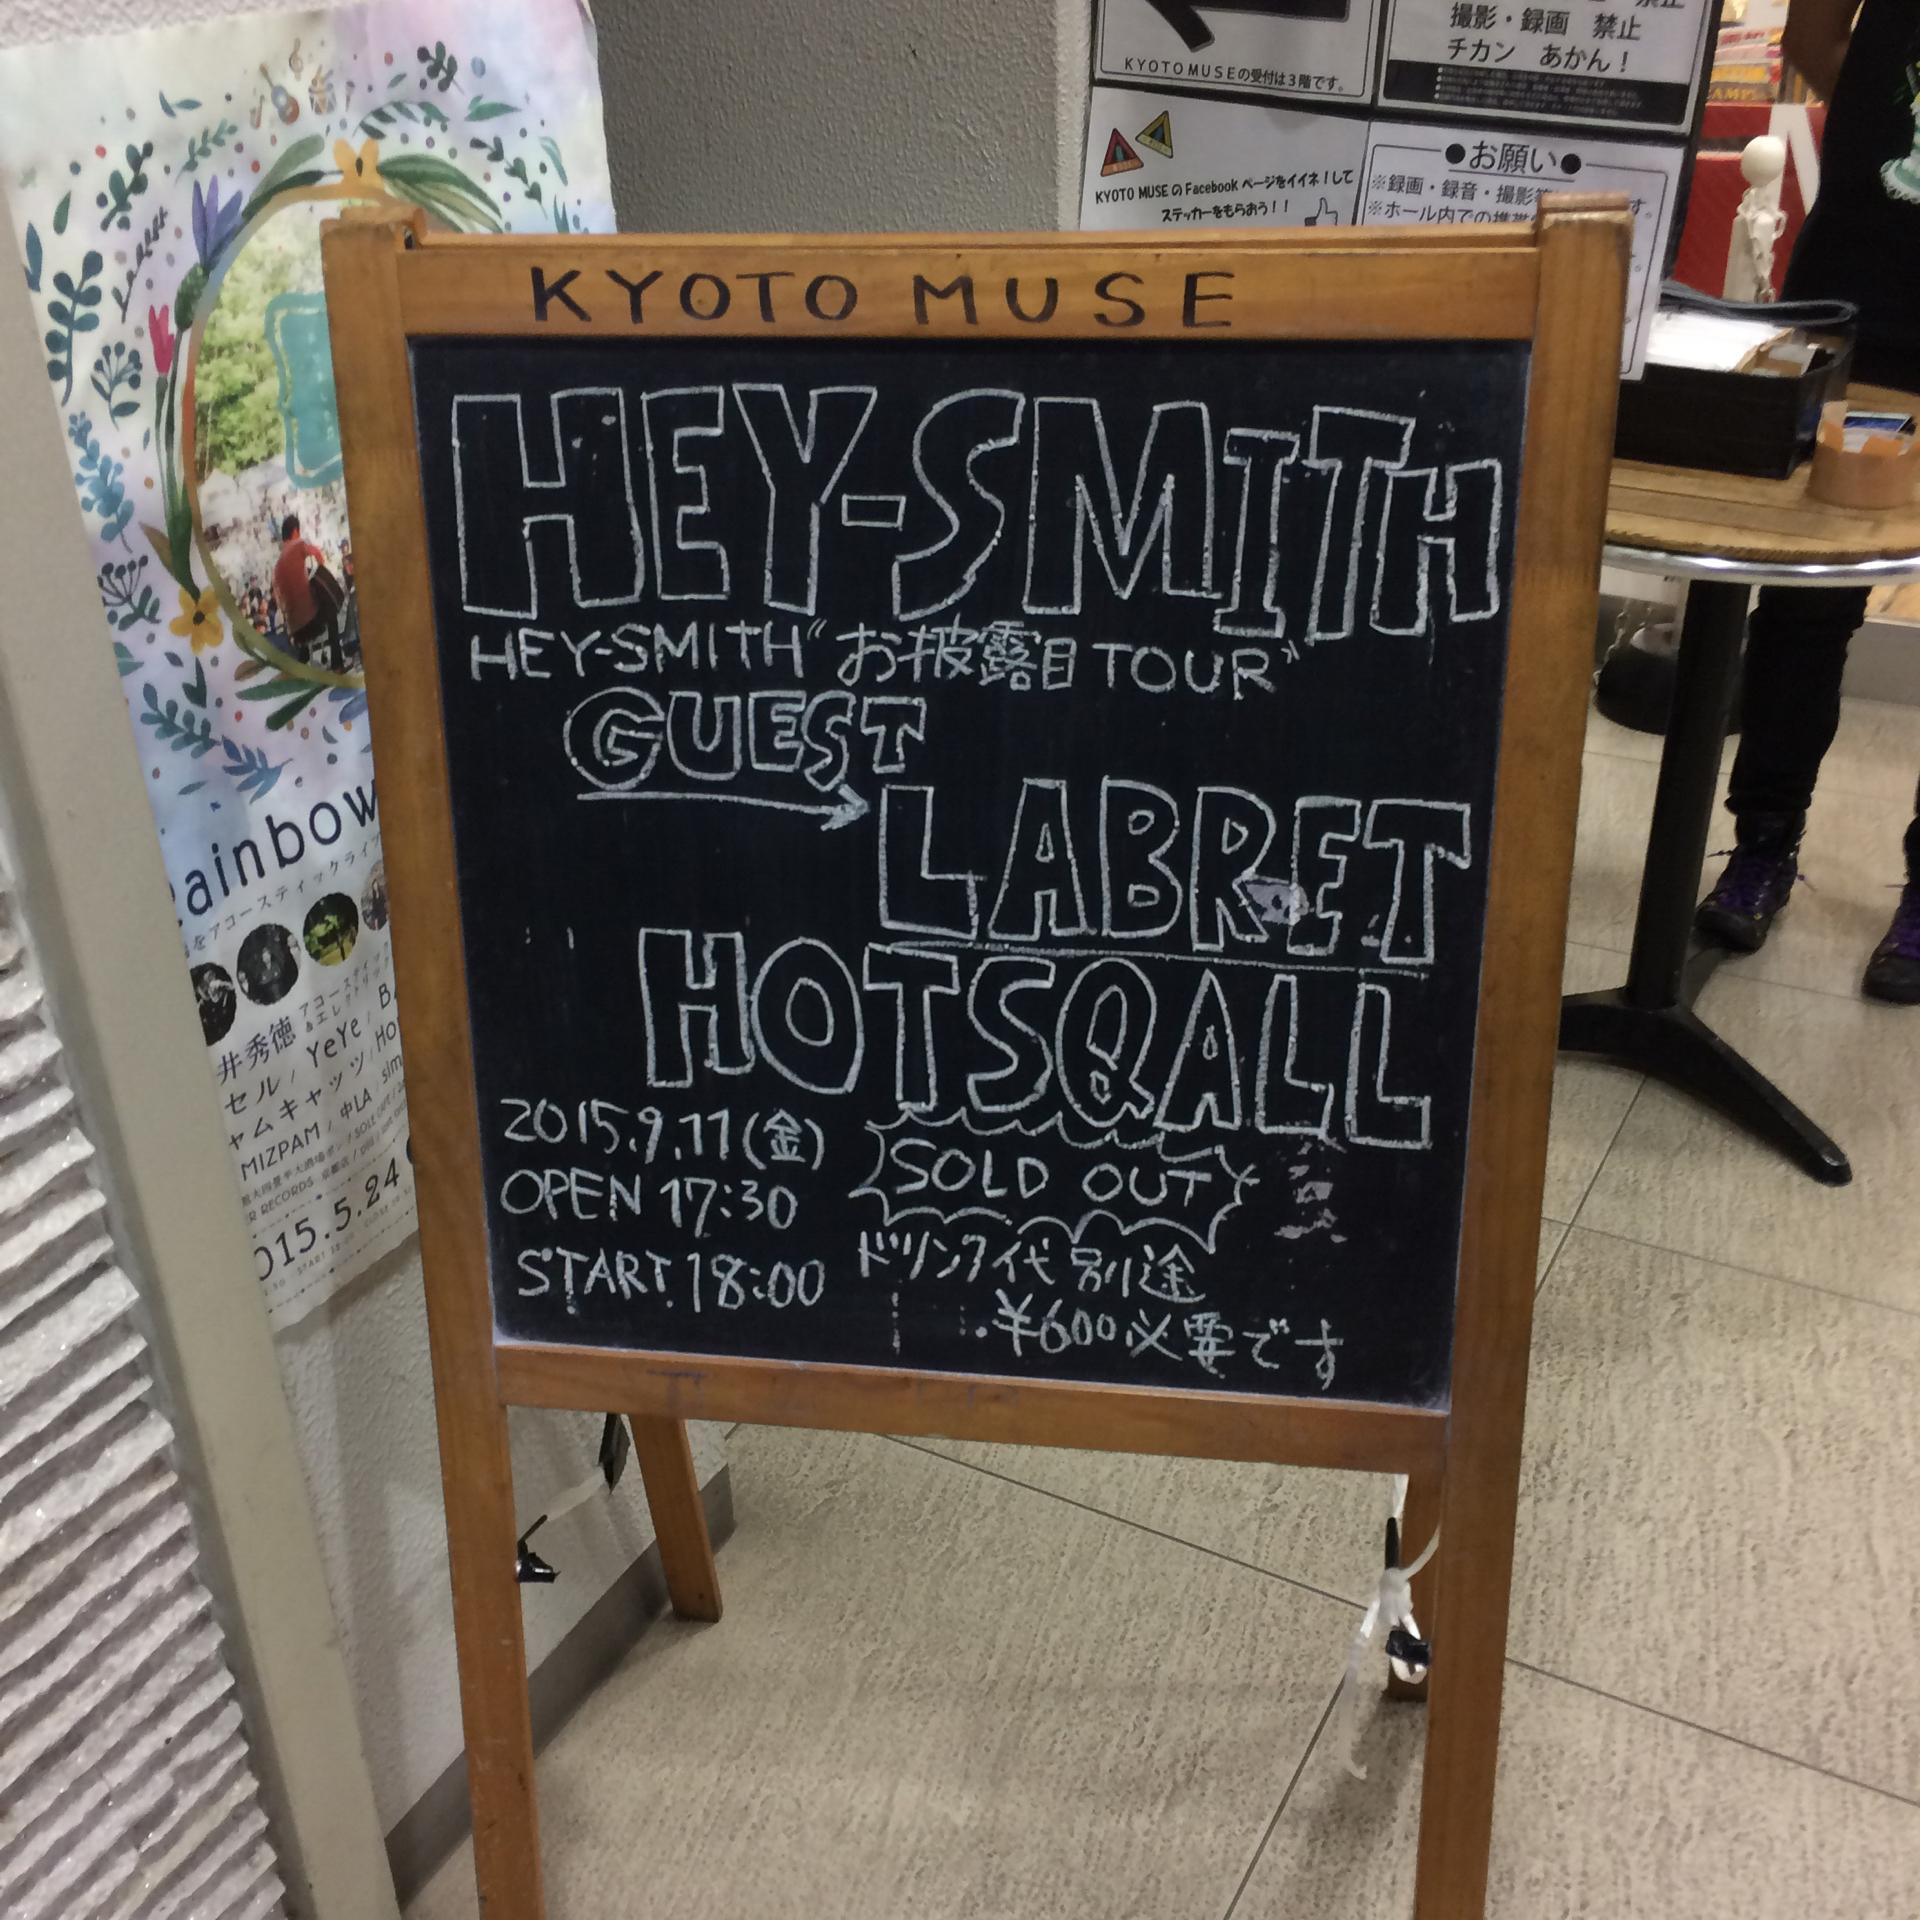 KYOTO MUSE
HEY-SMITH
HEY-SMITH"お披露目TOUR"
GUEST
LABRET
HOTSQALL
2015.9.11(金)
OPEN 17:30
START 18:00
SOLD OUT
ドリンク代別途
¥600必要です
KYOTO MUSEの受付は3階です。
KYOTO MUSEのFacebookページをイイネ!して
ステッカーをもらおう!!
撮影・録画 禁止
チカン あかん!
●お願い●
※録画・録音・撮影
※ホール内での携帯
ainbow
をアコースティックライブ
井秀徳
YeYe
セル
ムキャッツ
MIZPAM / 中LA
RECORDS
015.5.24